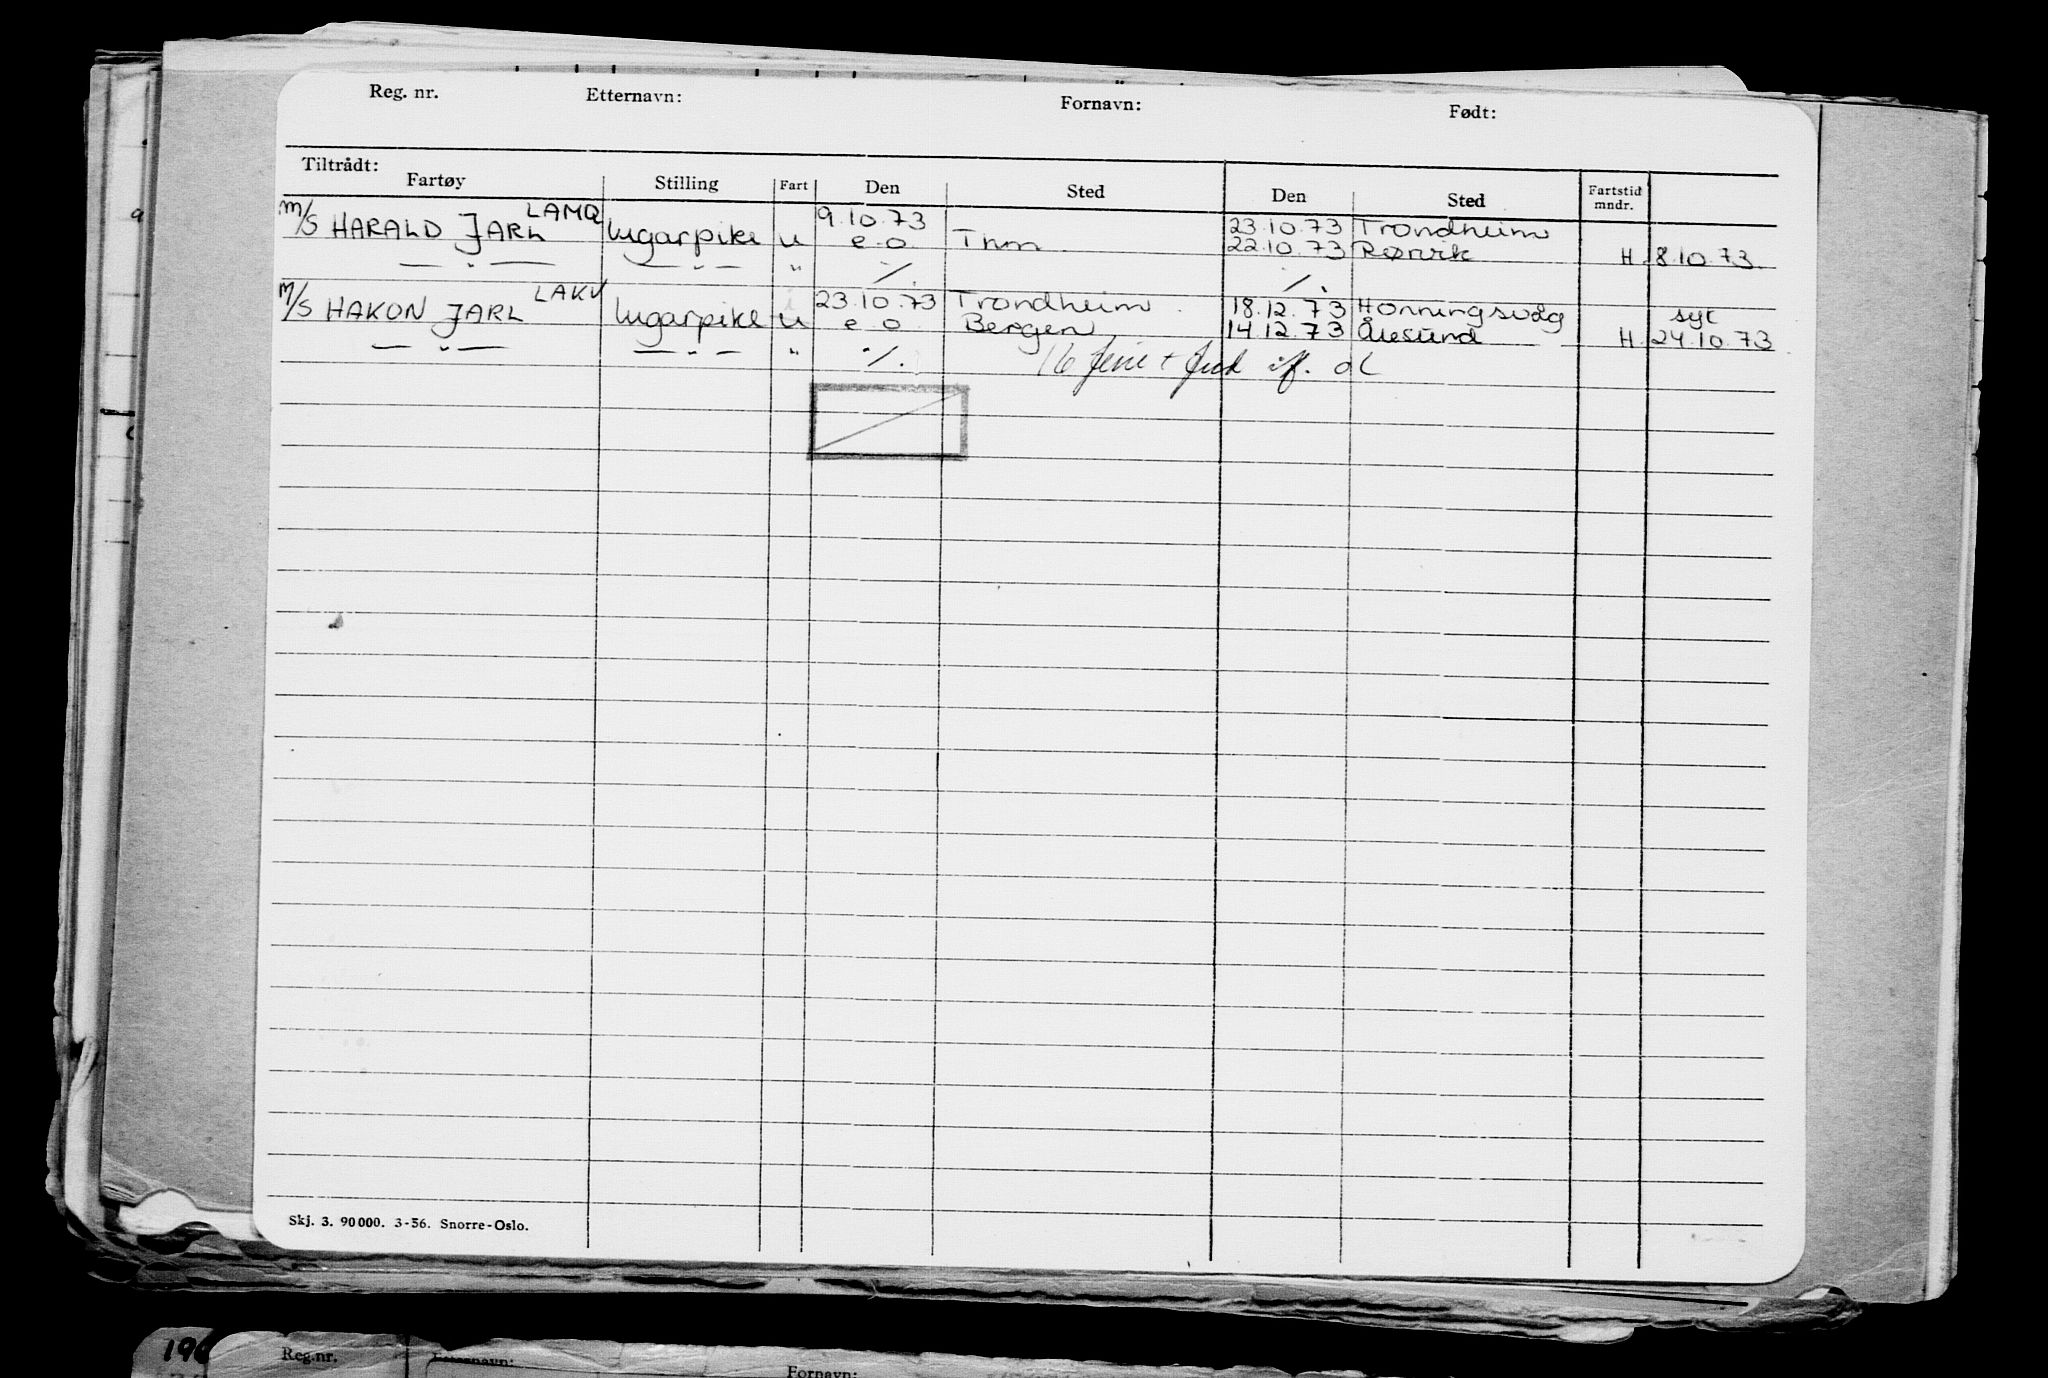 Reg. nr. Etternavn: Fornavn: Født:
Tiltrådt:
Fartøy Stilling Fart Den Sted Den Sted Fartstid mndr.
LAMQ 9.10.73 23.10.73 Trondheim
M/S HARALD JARL lugarpike u e.o. Thm 22.10.73 Rørvik H. 8.10.73
— " — — " — " ./. ./.
LAKV 23.10.73 Trondheim 18.12.73 Honningsvåg syk
M/S HAKON JARL lugarpike u e.o. Bergen 14.12.73 Ålesund H. 24.10.73
— " — — " — " ./. 16 ferie + frid if. oL
Skj. 3. 90000. 3-56. Snorre-Oslo.
196
Reg.nr. Etternavn: Fornavn: